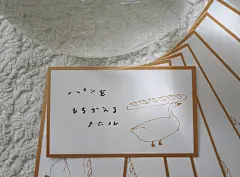 パンを
もちかえる
アヒル